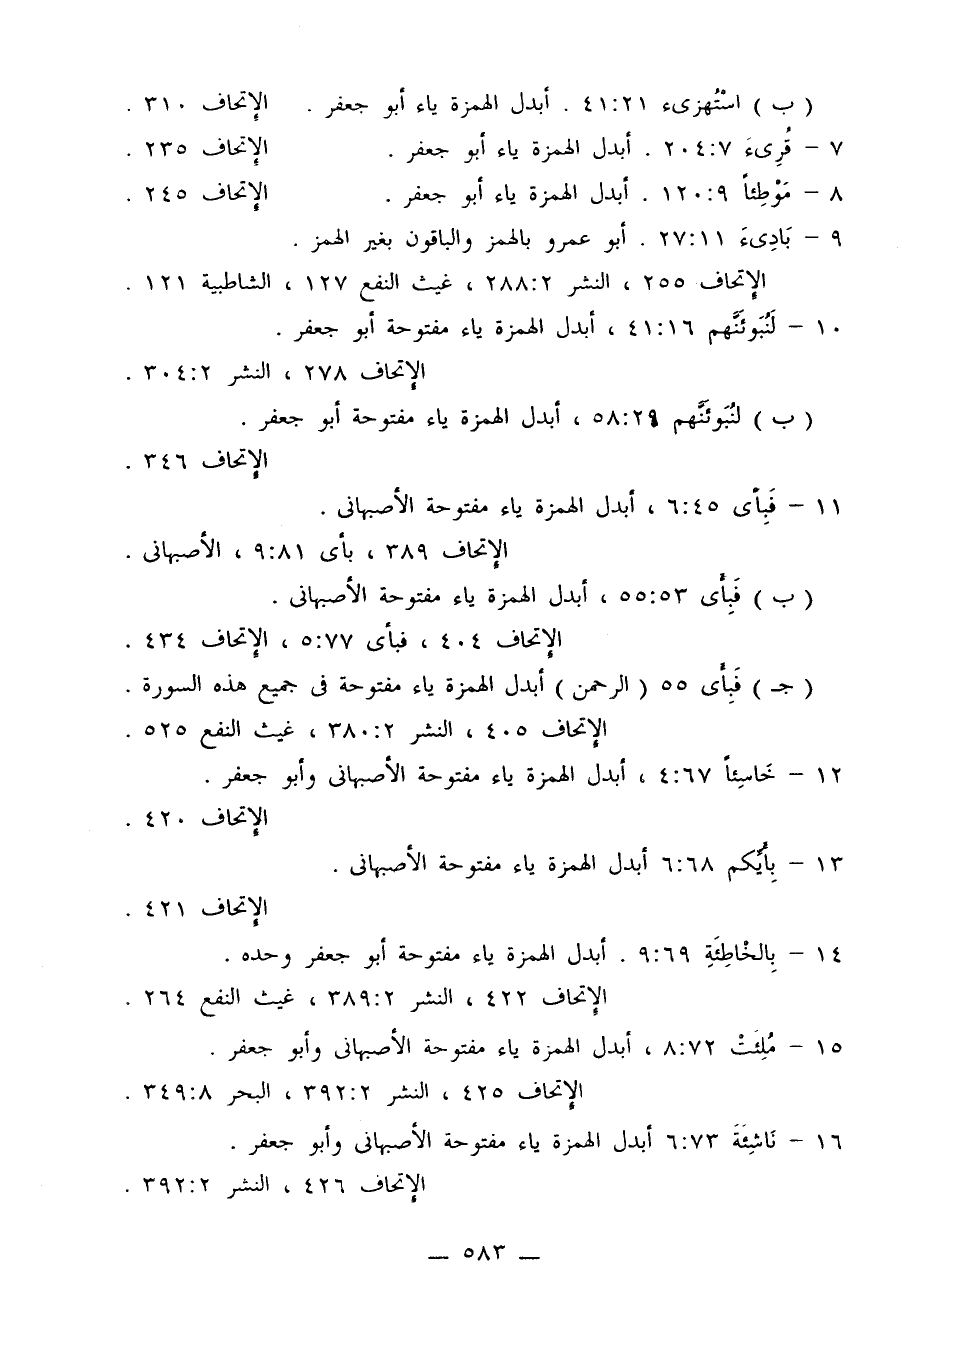 ( ب ) اسْتُهزىء ٤١:٢١ . أبدل الهمزة ياء أبو جعفر . الإتحاف ٣١٠ .
٧ – قُرِىءَ ٢٠٤:٧ . أبدل الهمزة ياء أبو جعفر . الإتحاف ٢٣٥ .
٨ – مَوْطِئاً ١٢٠:٩ . أبدل الهمزة ياء أبو جعفر . الإتحاف ٢٤٥ .
٩ – بَادِىءَ ٢٧:١١ . أبو عمرو بالهمز والباقون بغير الهمز .
الإتحاف ٢٥٥ ، النشر ٢٨٨:٢ ، غيث النفع ١٢٧ ، الشاطبية ١٢١ .
١٠ – لَنُبَوئَنَّهم ٤١:١٦ ، أبدل الهمزة ياء مفتوحة أبو جعفر .
الإتحاف ٢٧٨ ، النشر ٣٠٤:٢ .
( ب ) لنُبَوئَنَّهم ٥٨:٢٩ ، أبدل الهمزة ياء مفتوحة أبو جعفر .
الإتحاف ٣٤٦ .
١١ – فَبِأى ٦:٤٥ ، أبدل الهمزة ياء مفتوحة الأصبهانى .
الإتحاف ٣٨٩ ، بأى ٩:٨١ ، الأصبهانى .
( ب ) فَبِأى ٥٥:٥٣ ، أبدل الهمزة ياء مفتوحة الأصبهانى .
الإتحاف ٤٠٤ ، فبأى ٥:٧٧ ، الإتحاف ٤٣٤ .
( جـ ) فَبِأى ٥٥ ( الرحمن ) أبدل الهمزة ياء مفتوحة فى جميع هذه السورة .
الإتحاف ٤٠٥ ، النشر ٣٨٠:٢ ، غيث النفع ٥٢٥ .
١٢ – خَاسِئاً ٤:٦٧ ، أبدل الهمزة ياء مفتوحة الأصبهانى وأبو جعفر .
الإتحاف ٤٢٠ .
١٣ – بِأَيِّكم ٦:٦٨ أبدل الهمزة ياء مفتوحة الأصبهانى .
الإتحاف ٤٢١ .
١٤ – بِالخْاطِئَةِ ٩:٦٩ . أبدل الهمزة ياء مفتوحة أبو جعفر وحده .
الإتحاف ٤٢٢ ، النشر ٣٨٩:٢ ، غيث النفع ٢٦٤ .
١٥ – مُلِئَتْ ٨:٧٢ ، أبدل الهمزة ياء مفتوحة الأصبهانى وأبو جعفر .
الإتحاف ٤٢٥ ، النشر ٣٩٢:٢ ، البحر ٣٤٩:٨ .
١٦ – نَاشِئَةَ ٦:٧٣ أبدل الهمزة ياء مفتوحة الأصبهانى وأبو جعفر .
الإتحاف ٤٢٦ ، النشر ٣٩٢:٢ .
— ٥٨٣ —